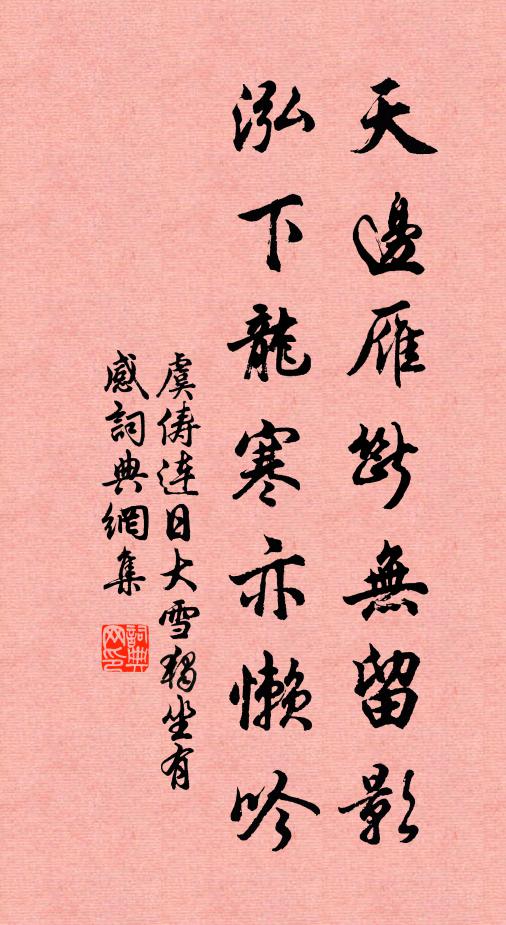 天邊雁斷無留影
泓下龍寒亦懶吟
虞儔連日大雪獨坐有
感詞典網集
詞典
网印